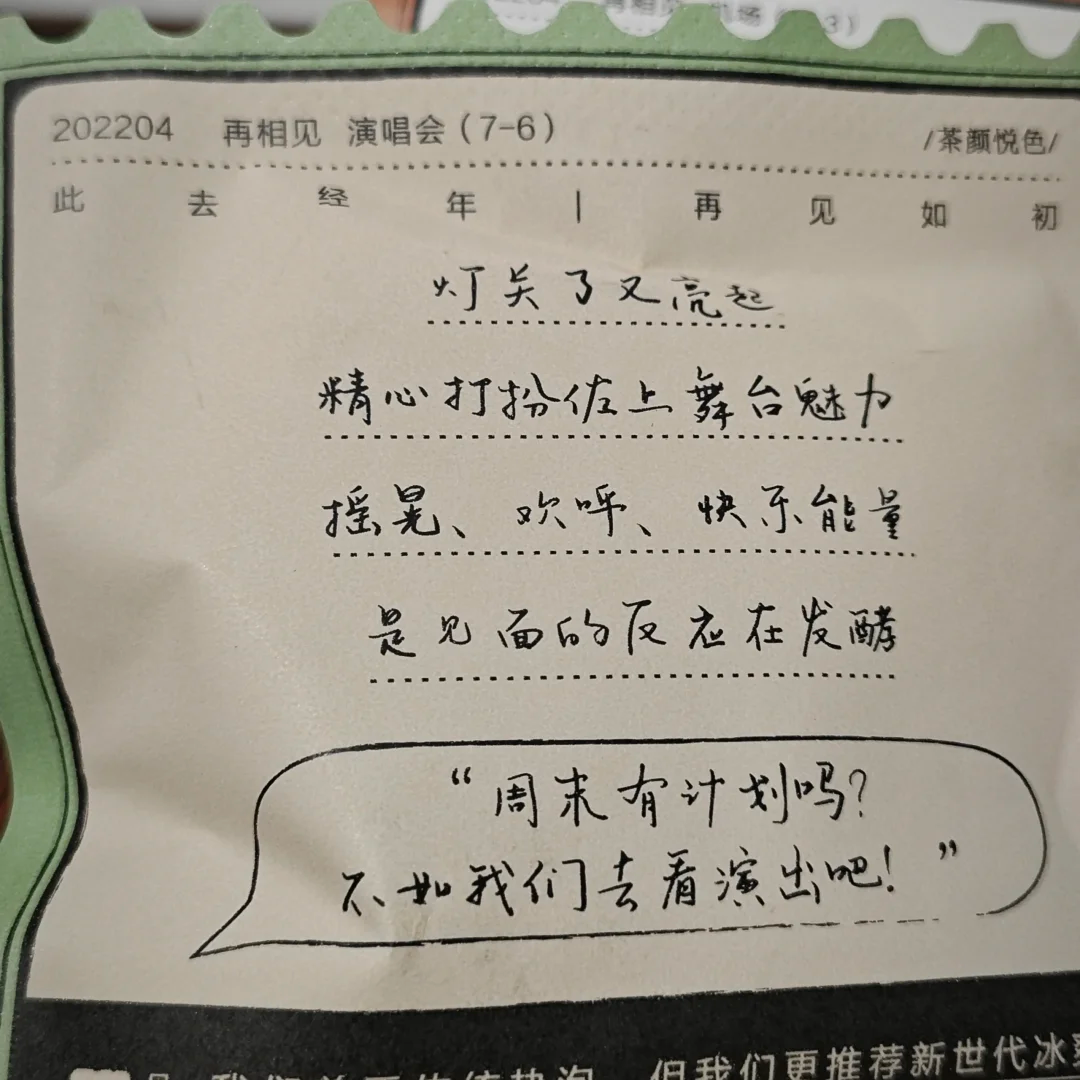 再相见 机场
202204 再相见 演唱会(7-6) /茶颜悦色/
此去经年|再见如初
灯关了又亮起
精心打扮佐上舞台魅力
摇晃、欢呼、快乐能量
是见面的反应在发酵
“周末有计划吗?
不如我们去看演出吧!”
但我们更推荐新世代冰